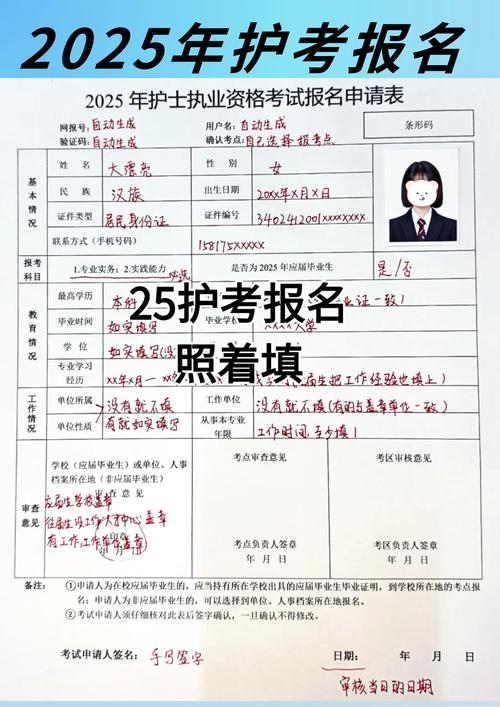 2025年护考报名
2025 年护士执业资格考试报名申请表
网报号：自动生成 用户名：自动生成 条形码
验证码：自动生成 确认考点：自己选择报考点
基本情况
姓名 大漂亮 性别 女
民族 汉族 出生日期 20xx年X月X日
证件类型 居民身份证 证件编号 3402412001xxxxxxxx
联系方式（手机号码） 158175XXXXX
报考科目 1.专业实务；2.实践能力 必选 是否为 2025 年应届毕业生 是/否
教育情况
最高学历 本科 业证一致）
25护考报名
毕业时间 如实填写 毕业学校 大学
照着填
学位 如实填写
专业学习经历 xx年x月一 届生把工作经验也填上）
工作情况
单位所属 没有就不填 工作单位 没有就不填（有的与盖章单位一致）
单位性质 有就如实填写 从事本专业年限 工作时间至少填1
审查意见
学校（应届毕业生）或单位、人事档案所在地（非应届毕业生）审查意见
应届生学校盖章
往届生没工作人才中心盖章
有工作工作单位盖章
印章
年 月 日
考点审查意见
考点负责人签章
年 月 日
考区审核意见
考区负责人签章
年 月 日
备注： ①申请人为在校应届毕业生的，应当持有所在学校出具的应届毕业生毕业证明，到学校所在地的考点报
名；申请人为非应届毕业生的，可以选择到单位、人事档案所在地报名。
②考试申请人须仔细核对此表后签字确认，一旦确认不得修改。
考试申请人签名： 手写签字 日期： 年 月 日
审核当日的日期